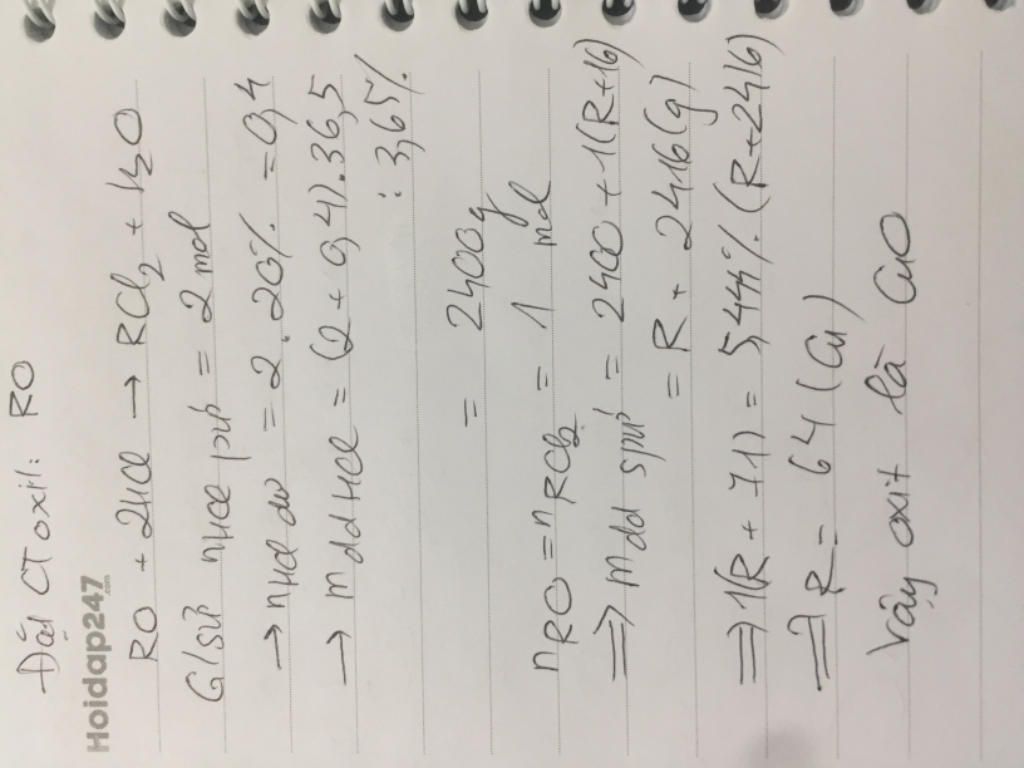 Đặt CT oxit: RO
Hoidap247.com
RO + 2HCl → RCl₂ + H₂O
G/sử nHCl pứ = 2 mol
→ nHCl dư = 2 . 20% = 0,4
→ mdd HCl = (2 + 0,4).36,5
: 3,65%
= 2400g
nRO = nRCl₂ = 1 mol
=> mdd spứ = 2400 + 1(R+16)
= R + 2416(g)
=> 1(R + 71) = 5,44%.(R+2416)
=> R = 64 (Cu)
Vậy oxit là CuO